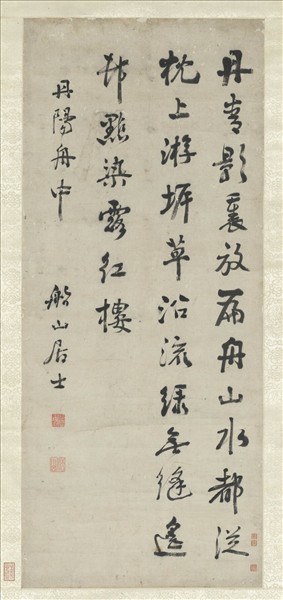 丹青影裏放扁舟山水都從
枕上游坪草沿流綠無縫遙
邨點染露紅樓
丹陽舟中
船山居士